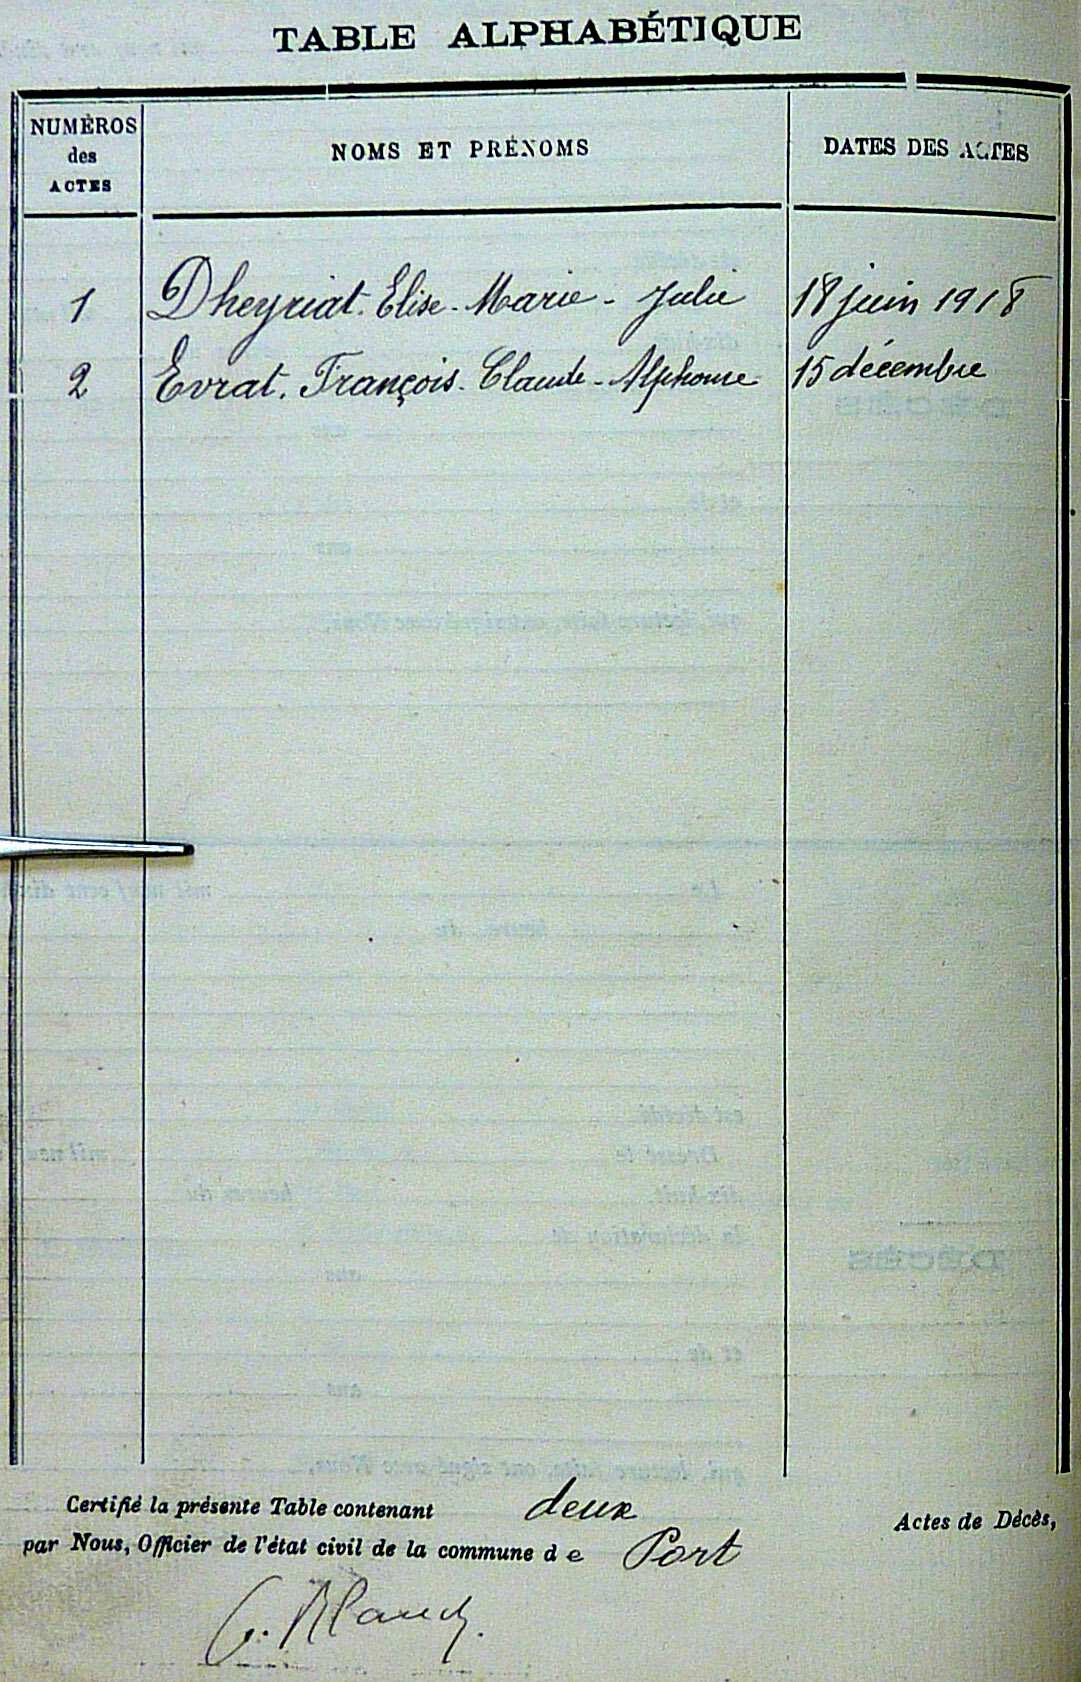 TABLE ALPHABÉTIQUE
NUMÉROS des ACTES
NOMS ET PRÉNOMS
DATES DES ACTES
1 Dheyriat. Elise - Marie - Julie 18 juin 1918
2 Evrat. François - Claude - Alphonse 15 décembre
Certifié la présente Table contenant deux Actes de Décès,
par Nous, Officier de l'état civil de la commune de Port